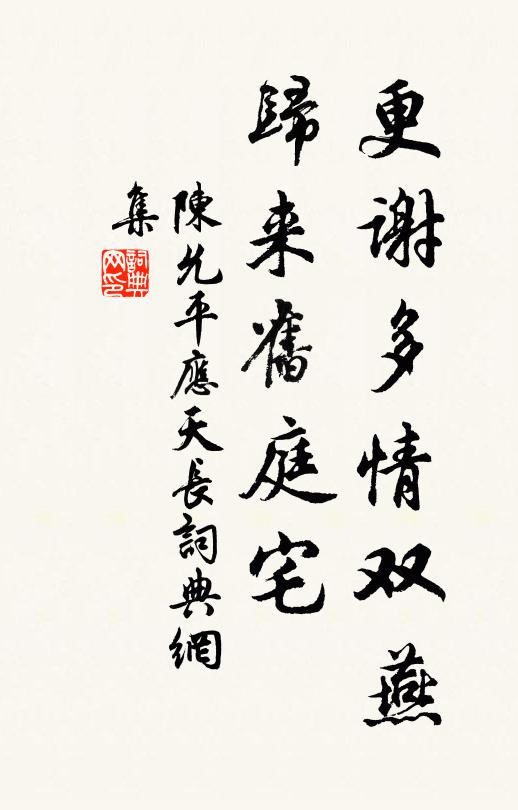 更谢多情双燕
歸来舊庭宅
陳允平應天長詞典網
集
詞典
网印